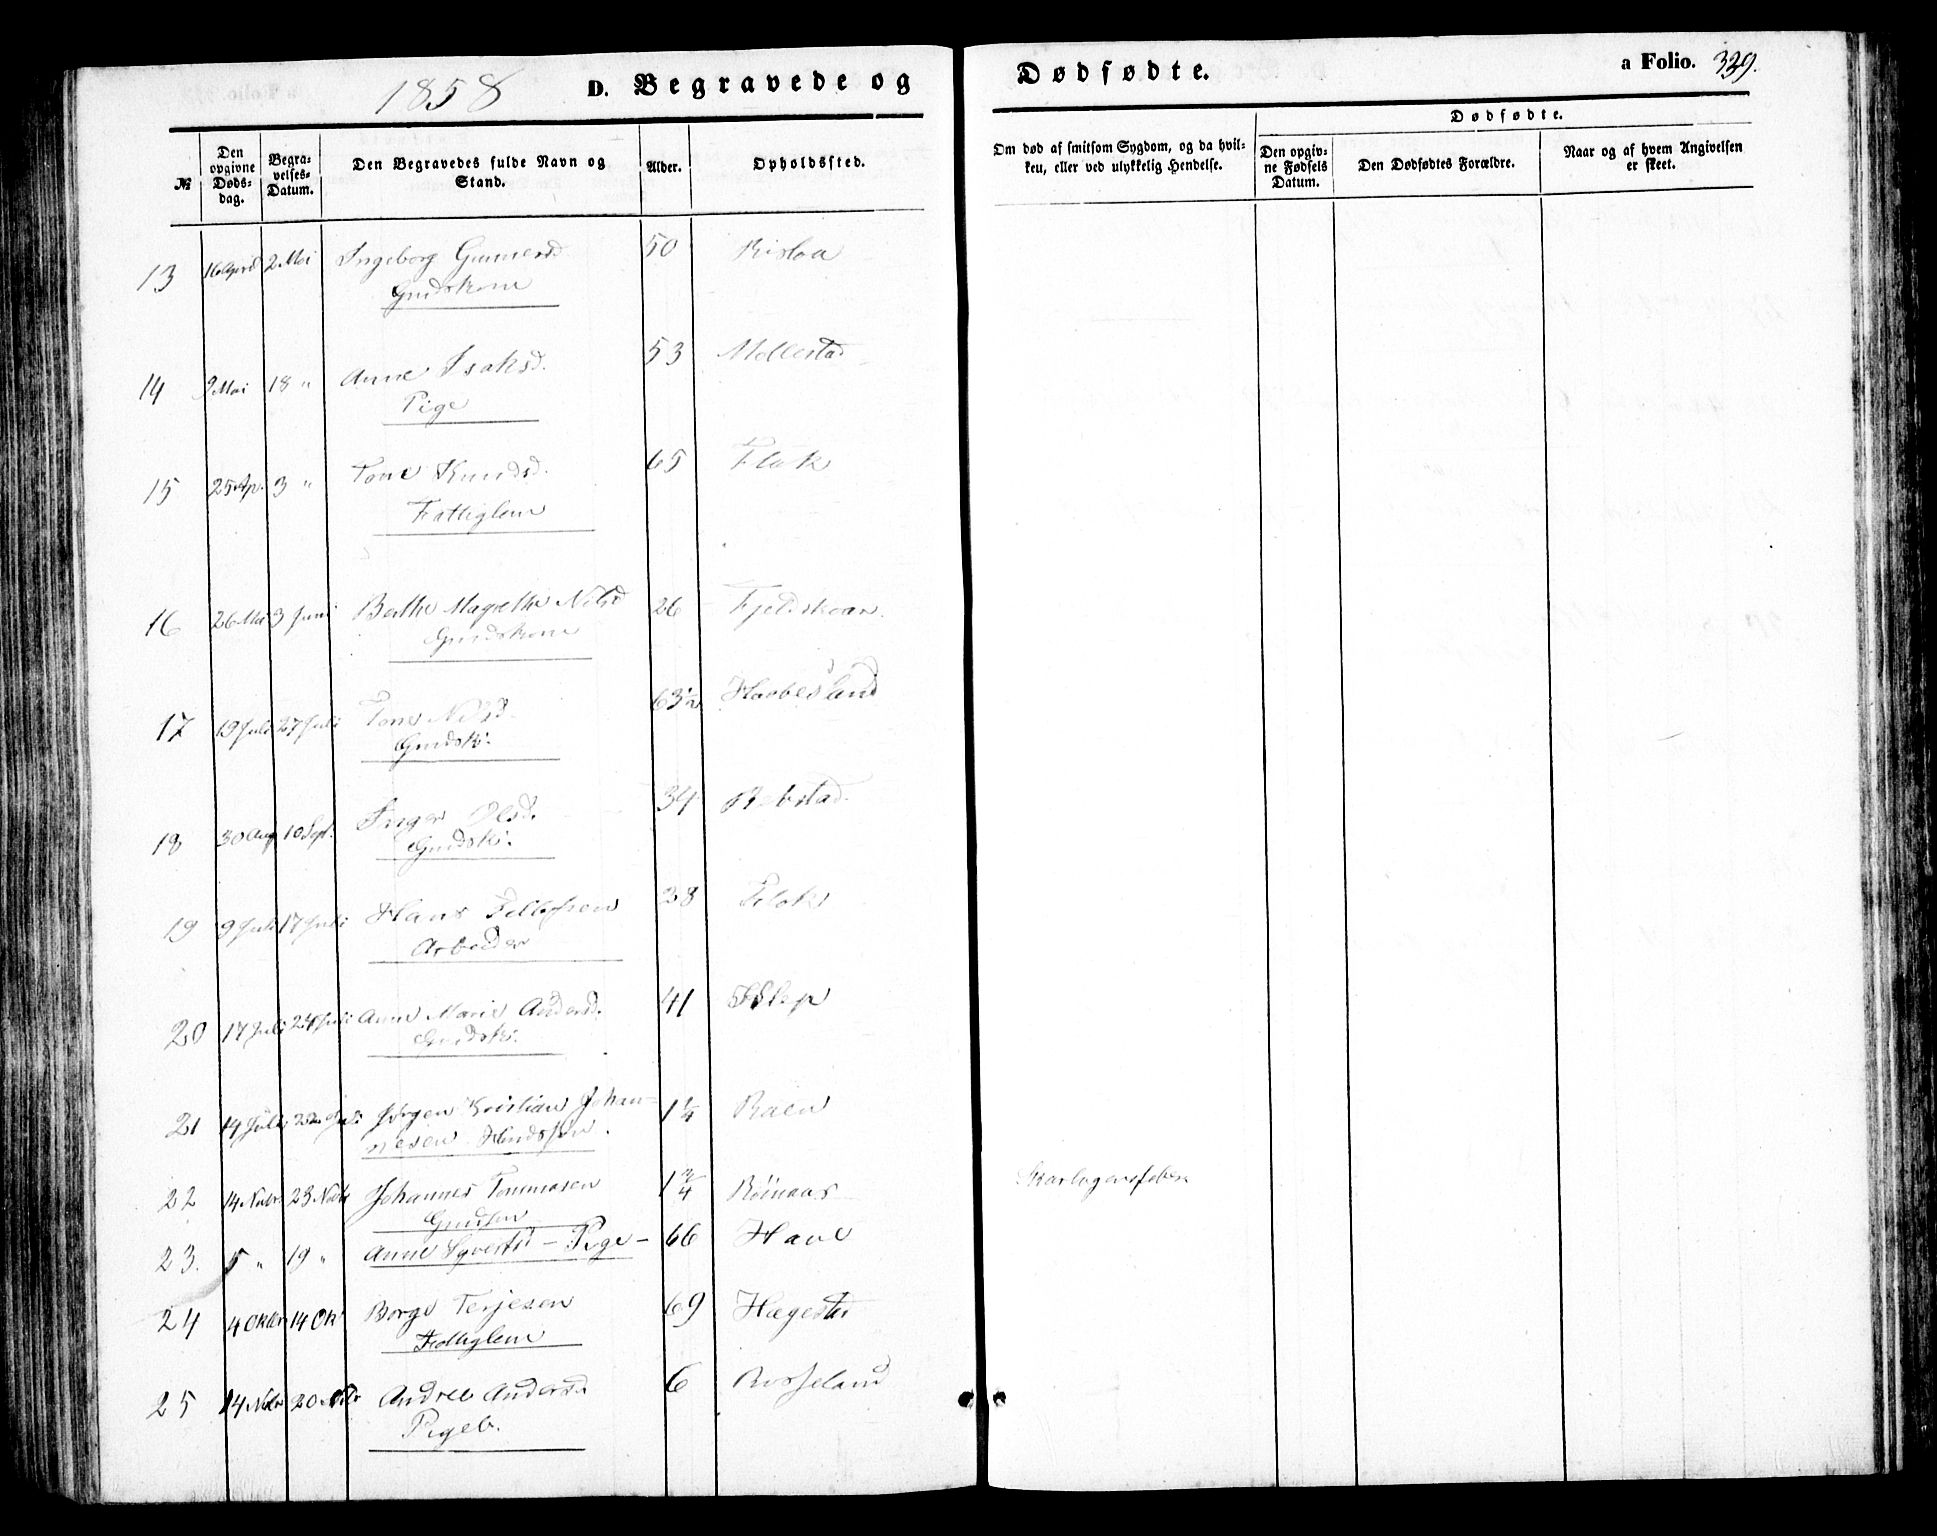 1858 D. Begravede og Dødfødte. a Folio. 329.
№
Den opgivne Døds-dag.
Begra-velses-Datum.
Den Begravedes fulde Navn og Stand.
Alder.
Opholdssted.
Om død af smitsom Sygdom, og da hvil-ken, eller ved ulykkelig Hendelse.
Dødfødte.
Den opgiv-ne Fødsels Datum.
Den Dødfødtes Forældre.
Naar og af hvem Angivelsen er skeet.
13 16 April 2 Mai Ingeborg Gunnersd 50 Risløa
Gmdskone
14 9 Mai 18 " Anne Isaksd. 53 Mollestad
Pige
15 25 Ap. 3 " Tone Knudsd. 65 Flak
Fattiglem
16 26 Mai 3 Juni Berthe Magrethe Nilsd 26 Fjeldskaar.
Gmdskone
17 19 Juli 27 Juli Tone Nilsd. 63½ Haabesland
Gmdsk.
18 30 Aug 10 Sept. Inger Olsd. 34 Rebstad.
Gmdsk.
19 9 Juli 17 Juli Hans Tellefsen 28 Flak
Arbeider
20 17 Juli 24 Juli Anne Marie Andersd. 41
Gmdsk.
21 14 Juli 22 Juli Jørgen Kristian Johan- 1¼ Raen
nesen
22 14 Novbr 23 Novbr Johannes Tommasen 1¾ Skarlagensfeber
Gmdsøn
23. 5 " 19 " Anne Syvertsd - Pige - 66 Have
24 4 Oktbr 14 Ok Børge Terjesen 69 Hægeste
Fattiglem
25 14 Nvbr 20 Nvbr Andrea Andersd 6 Rosseland
Pigeb.